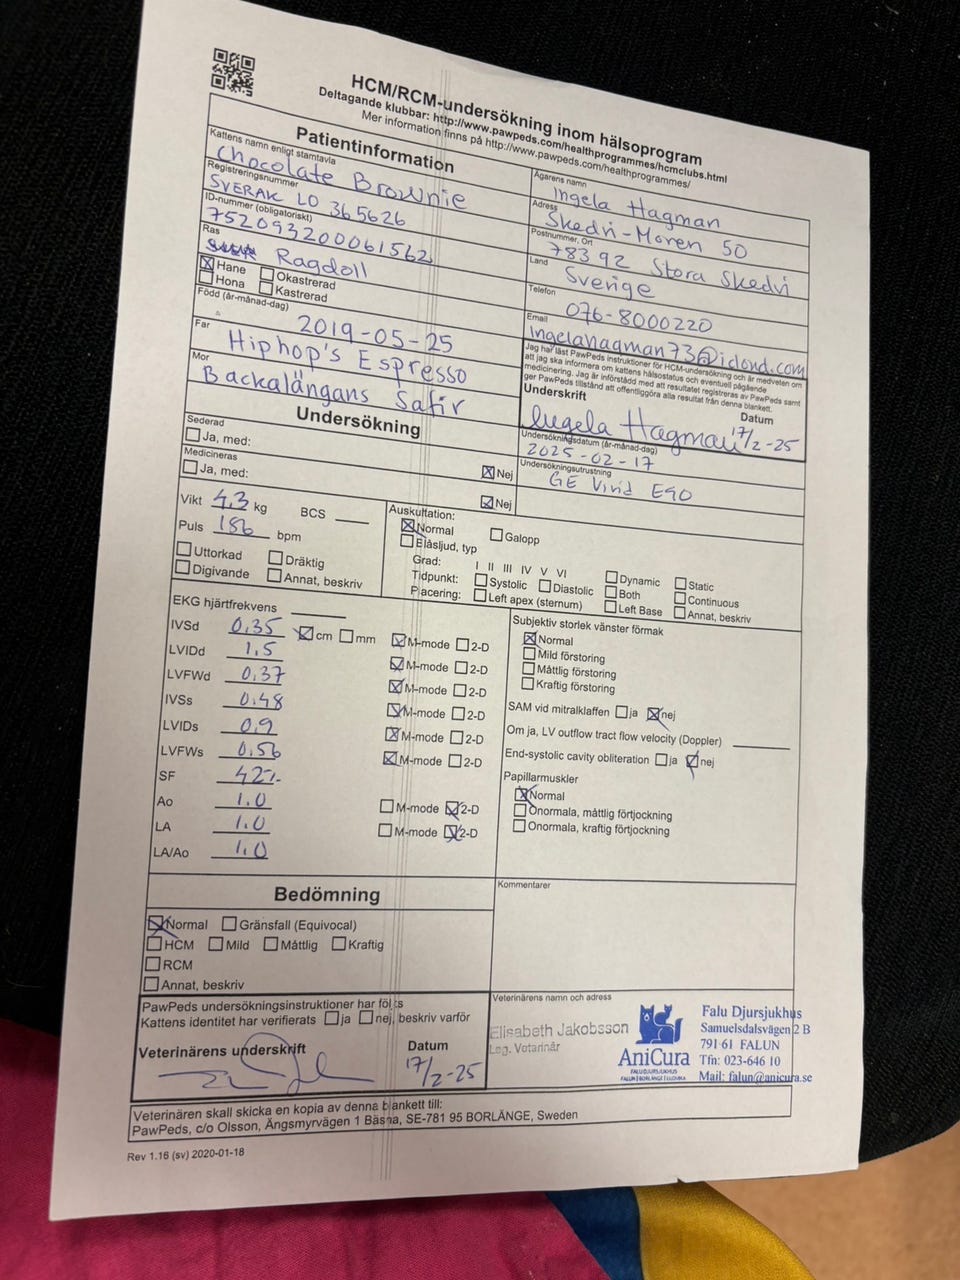 HCM/RCM-undersökning inom hälsoprogram
Deltagande klubbar: http://www.pawpeds.com/healthprogrammes/hcmclubs.html
Mer information finns på http://www.pawpeds.com/healthprogrammes/
Patientinformation
Kattens namn enligt stamtavla
Chocolate Brownie
Registreringsnummer
SVERAK LO 365626
ID-nummer (obligatoriskt)
752093200061562
Ras
Ragdoll
Hane Okastrerad
Hona Kastrerad
Född (år-månad-dag)
2019-05-25
Far
Hiphop's Espresso
Mor
Backalängans Safir
Ägarens namn
Ingela Hagman
Adress
Skedvi-Moren 50
Postnummer, Ort
78392 Stora Skedvi
Land
Sverige
Telefon
076-8000220
Email
Ingelahagman73@icloud.com
Jag har läst PawPeds instruktioner för HCM-undersökning och är medveten om
att jag ska informera om kattens hälsostatus och eventuell pågående
medicinering. Jag är införstådd med att resultatet registreras av PawPeds samt
ger PawPeds tillstånd att offentliggöra alla resultat från denna blankett.
Underskrift Datum
Ingela Hagman 17/2-25
Undersökning
Sederad
Ja, med: Nej
Medicineras
Ja, med: Nej
Undersökningsdatum (år-månad-dag)
2025-02-17
Undersökningsutrustning
GE Vivid E90
Vikt 4,3 kg BCS
Puls 156 bpm
Uttorkad Dräktig
Digivande Annat, beskriv
Auskultation:
Normal Galopp
Blåsljud, typ
Grad: I II III IV V VI
Tidpunkt: Systolic Diastolic
Placering: Left apex (sternum)
Dynamic Static
Both Continuous
Left Base Annat, beskriv
EKG hjärtfrekvens
IVSd 0,35 cm mm M-mode 2-D
LVIDd 1,5 M-mode 2-D
LVFWd 0,37 M-mode 2-D
IVSs 0,48 M-mode 2-D
LVIDs 0,9 M-mode 2-D
LVFWs 0,56 M-mode 2-D
SF 42%
Ao 1.0 M-mode 2-D
LA 1.0 M-mode 2-D
LA/Ao 1.0
Subjektiv storlek vänster förmak
Normal
Mild förstoring
Måttlig förstoring
Kraftig förstoring
SAM vid mitralklaffen ja nej
Om ja, LV outflow tract flow velocity (Doppler)
End-systolic cavity obliteration ja nej
Papillarmuskler
Normal
Onormala, måttlig förtjockning
Onormala, kraftig förtjockning
Bedömning
Normal Gränsfall (Equivocal)
HCM Mild Måttlig Kraftig
RCM
Annat, beskriv
Kommentarer
PawPeds undersökningsinstruktioner har följts
Kattens identitet har verifierats ja nej, beskriv varför
Veterinärens underskrift Datum
17/2-25
Veterinärens namn och adress
Elisabeth Jakobsson
Leg. Veterinär
AniCura
FALU DJURSJUKHUS
Falu Djursjukhus
Samuelsdalsvägen 2 B
791 61 FALUN
Tfn: 023-646 10
Mail: falun@anicura.se
Veterinären skall skicka en kopia av denna blankett till:
PawPeds, c/o Olsson, Ängsmyrvägen 1 Bäsna, SE-781 95 BORLÄNGE, Sweden
Rev 1.16 (sv) 2020-01-18